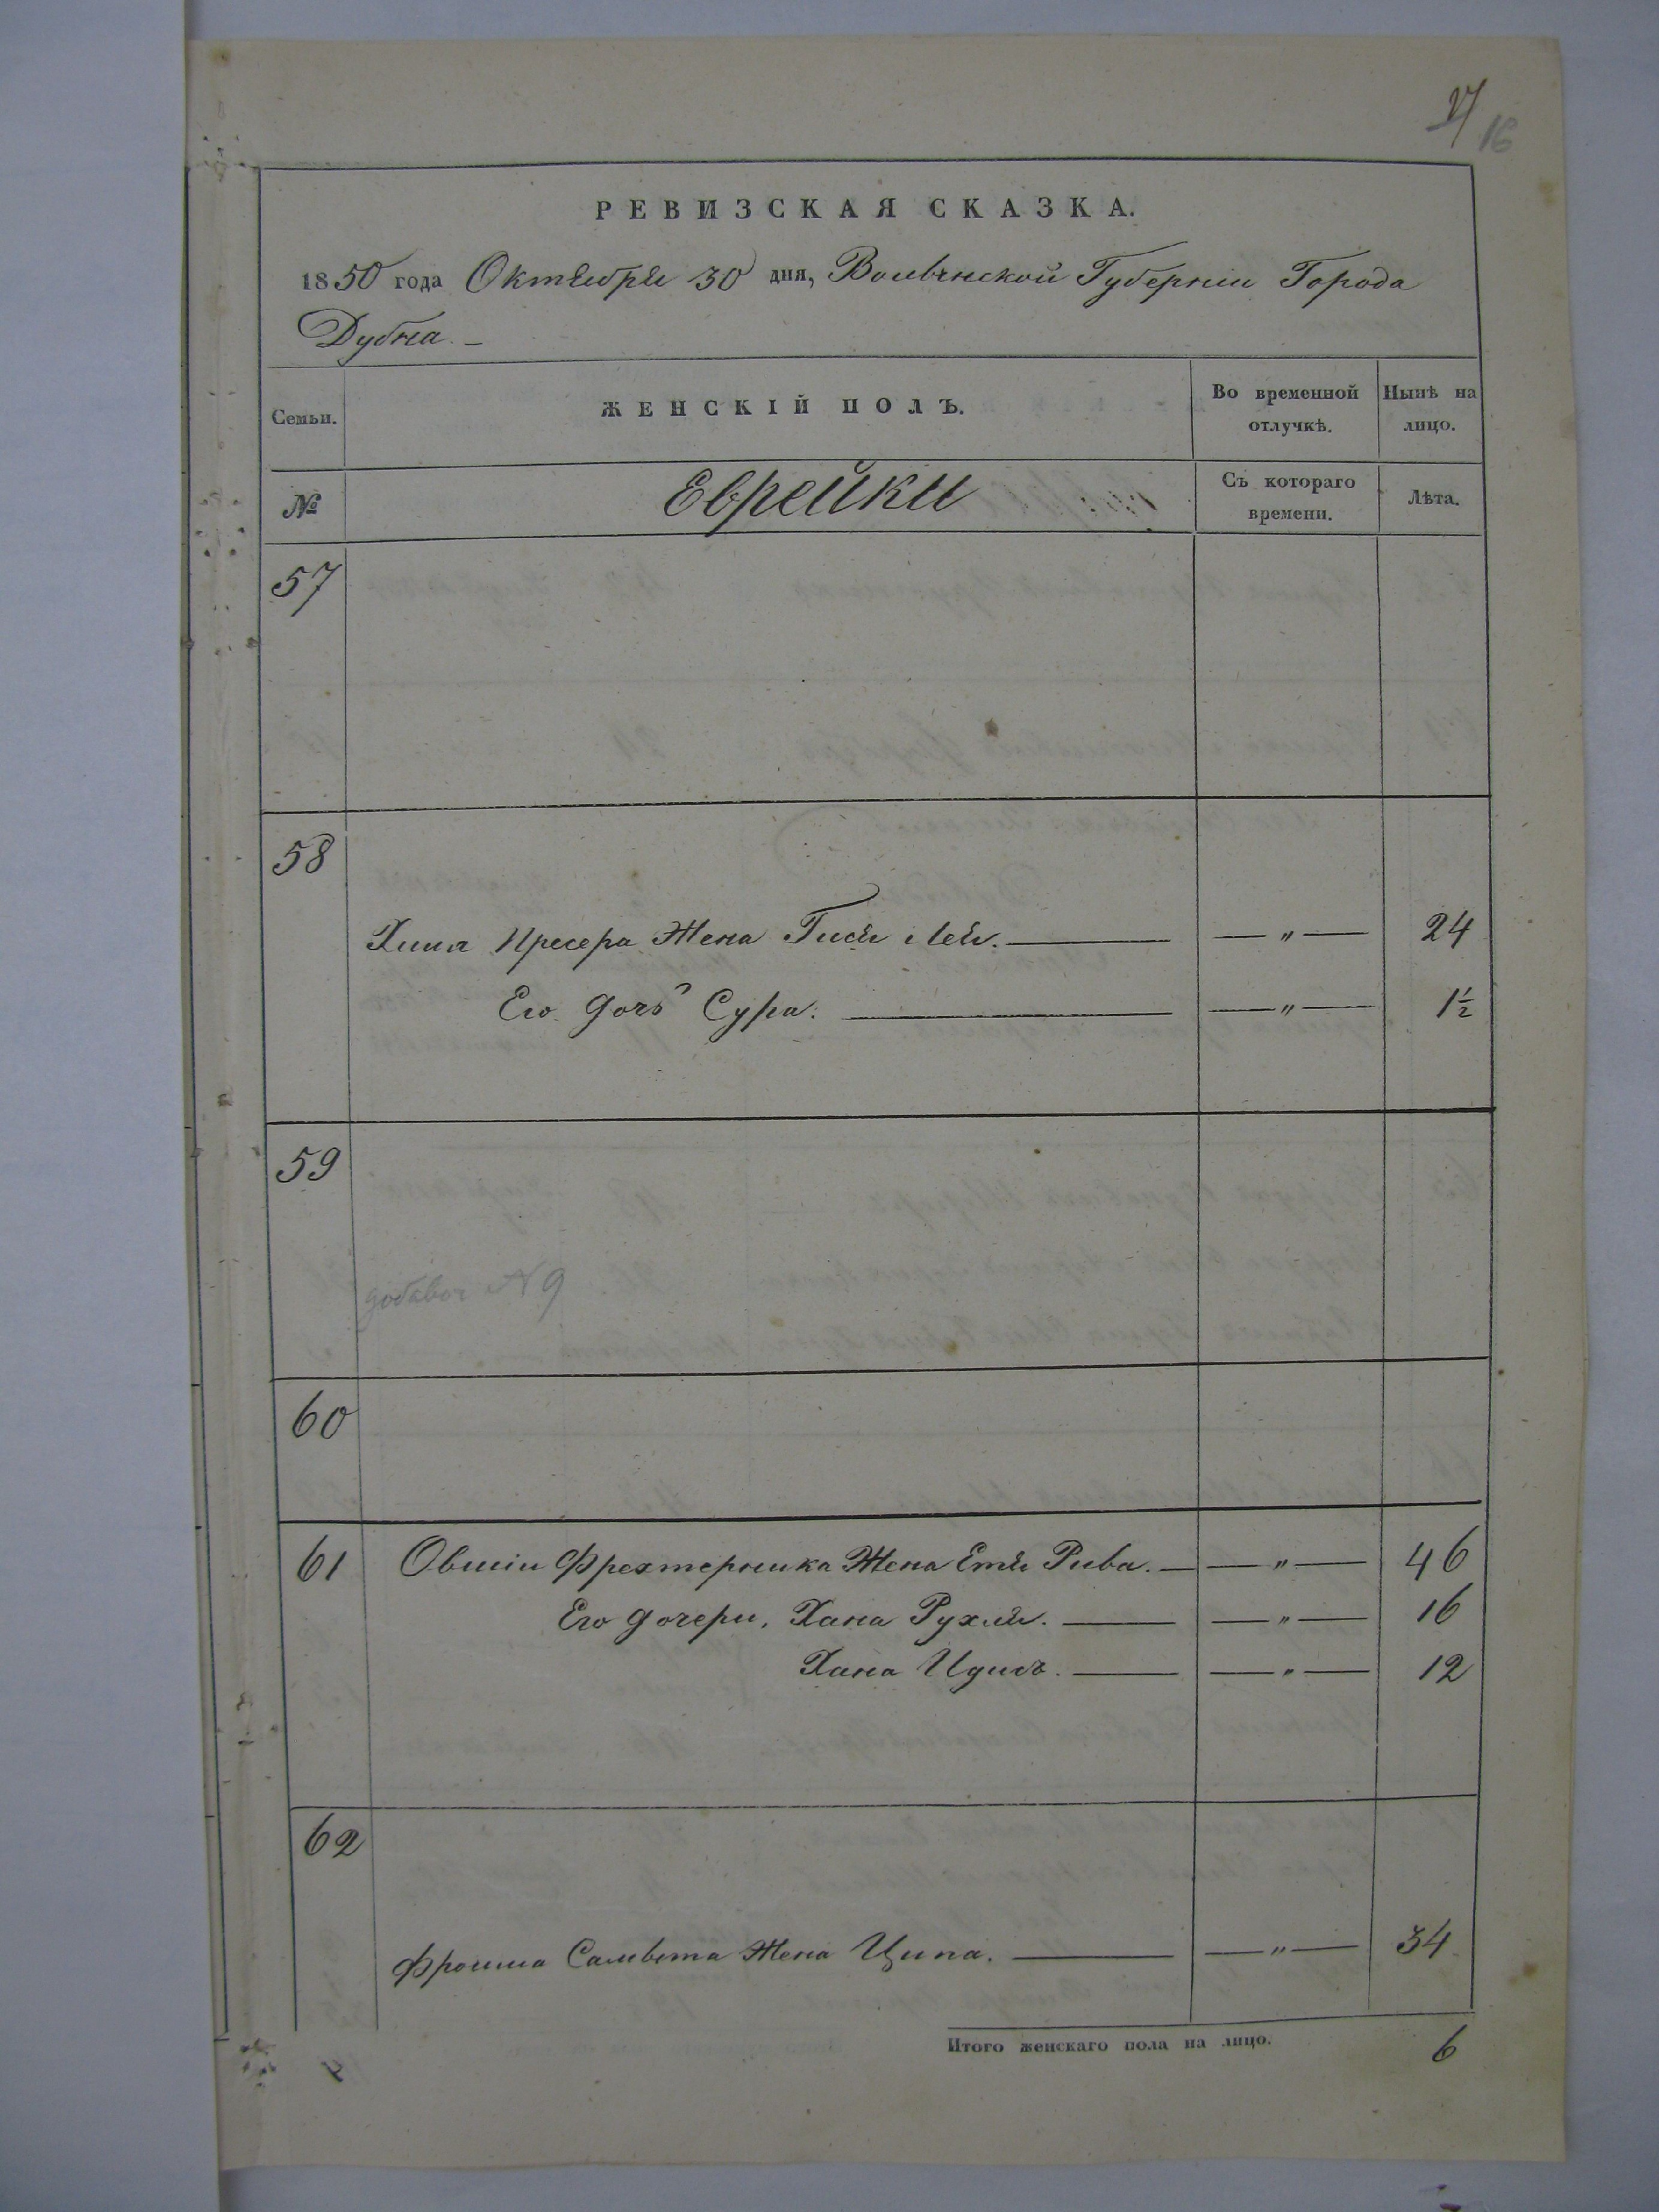 27
16
РЕВИЗСКАЯ СКАЗКА.
1850 года Октября 30 дня, Волынской Губернии Города
Дубна. —
Семьи. ЖЕНСКІЙ ПОЛЪ. Во временной отлучкѣ. Нынѣ на лицо.
№ Еврейки Съ котораго времени. Лѣта.
57
58
Хиля Пресера Жена Гися Лея. — — „ — 24
Его дочь Сура. — — „ — 1½
59
добавоч N 9
60
61 Овшіи Фрехтерника Жена Етя Рива. — — „ — 46
Его дочери, Хана Рухля. — — „ — 16
Хана Идись. — — „ — 12
62
Фроима Сальвета Жена Ципа. — — „ — 34
Итого женскаго пола на лицо. 6